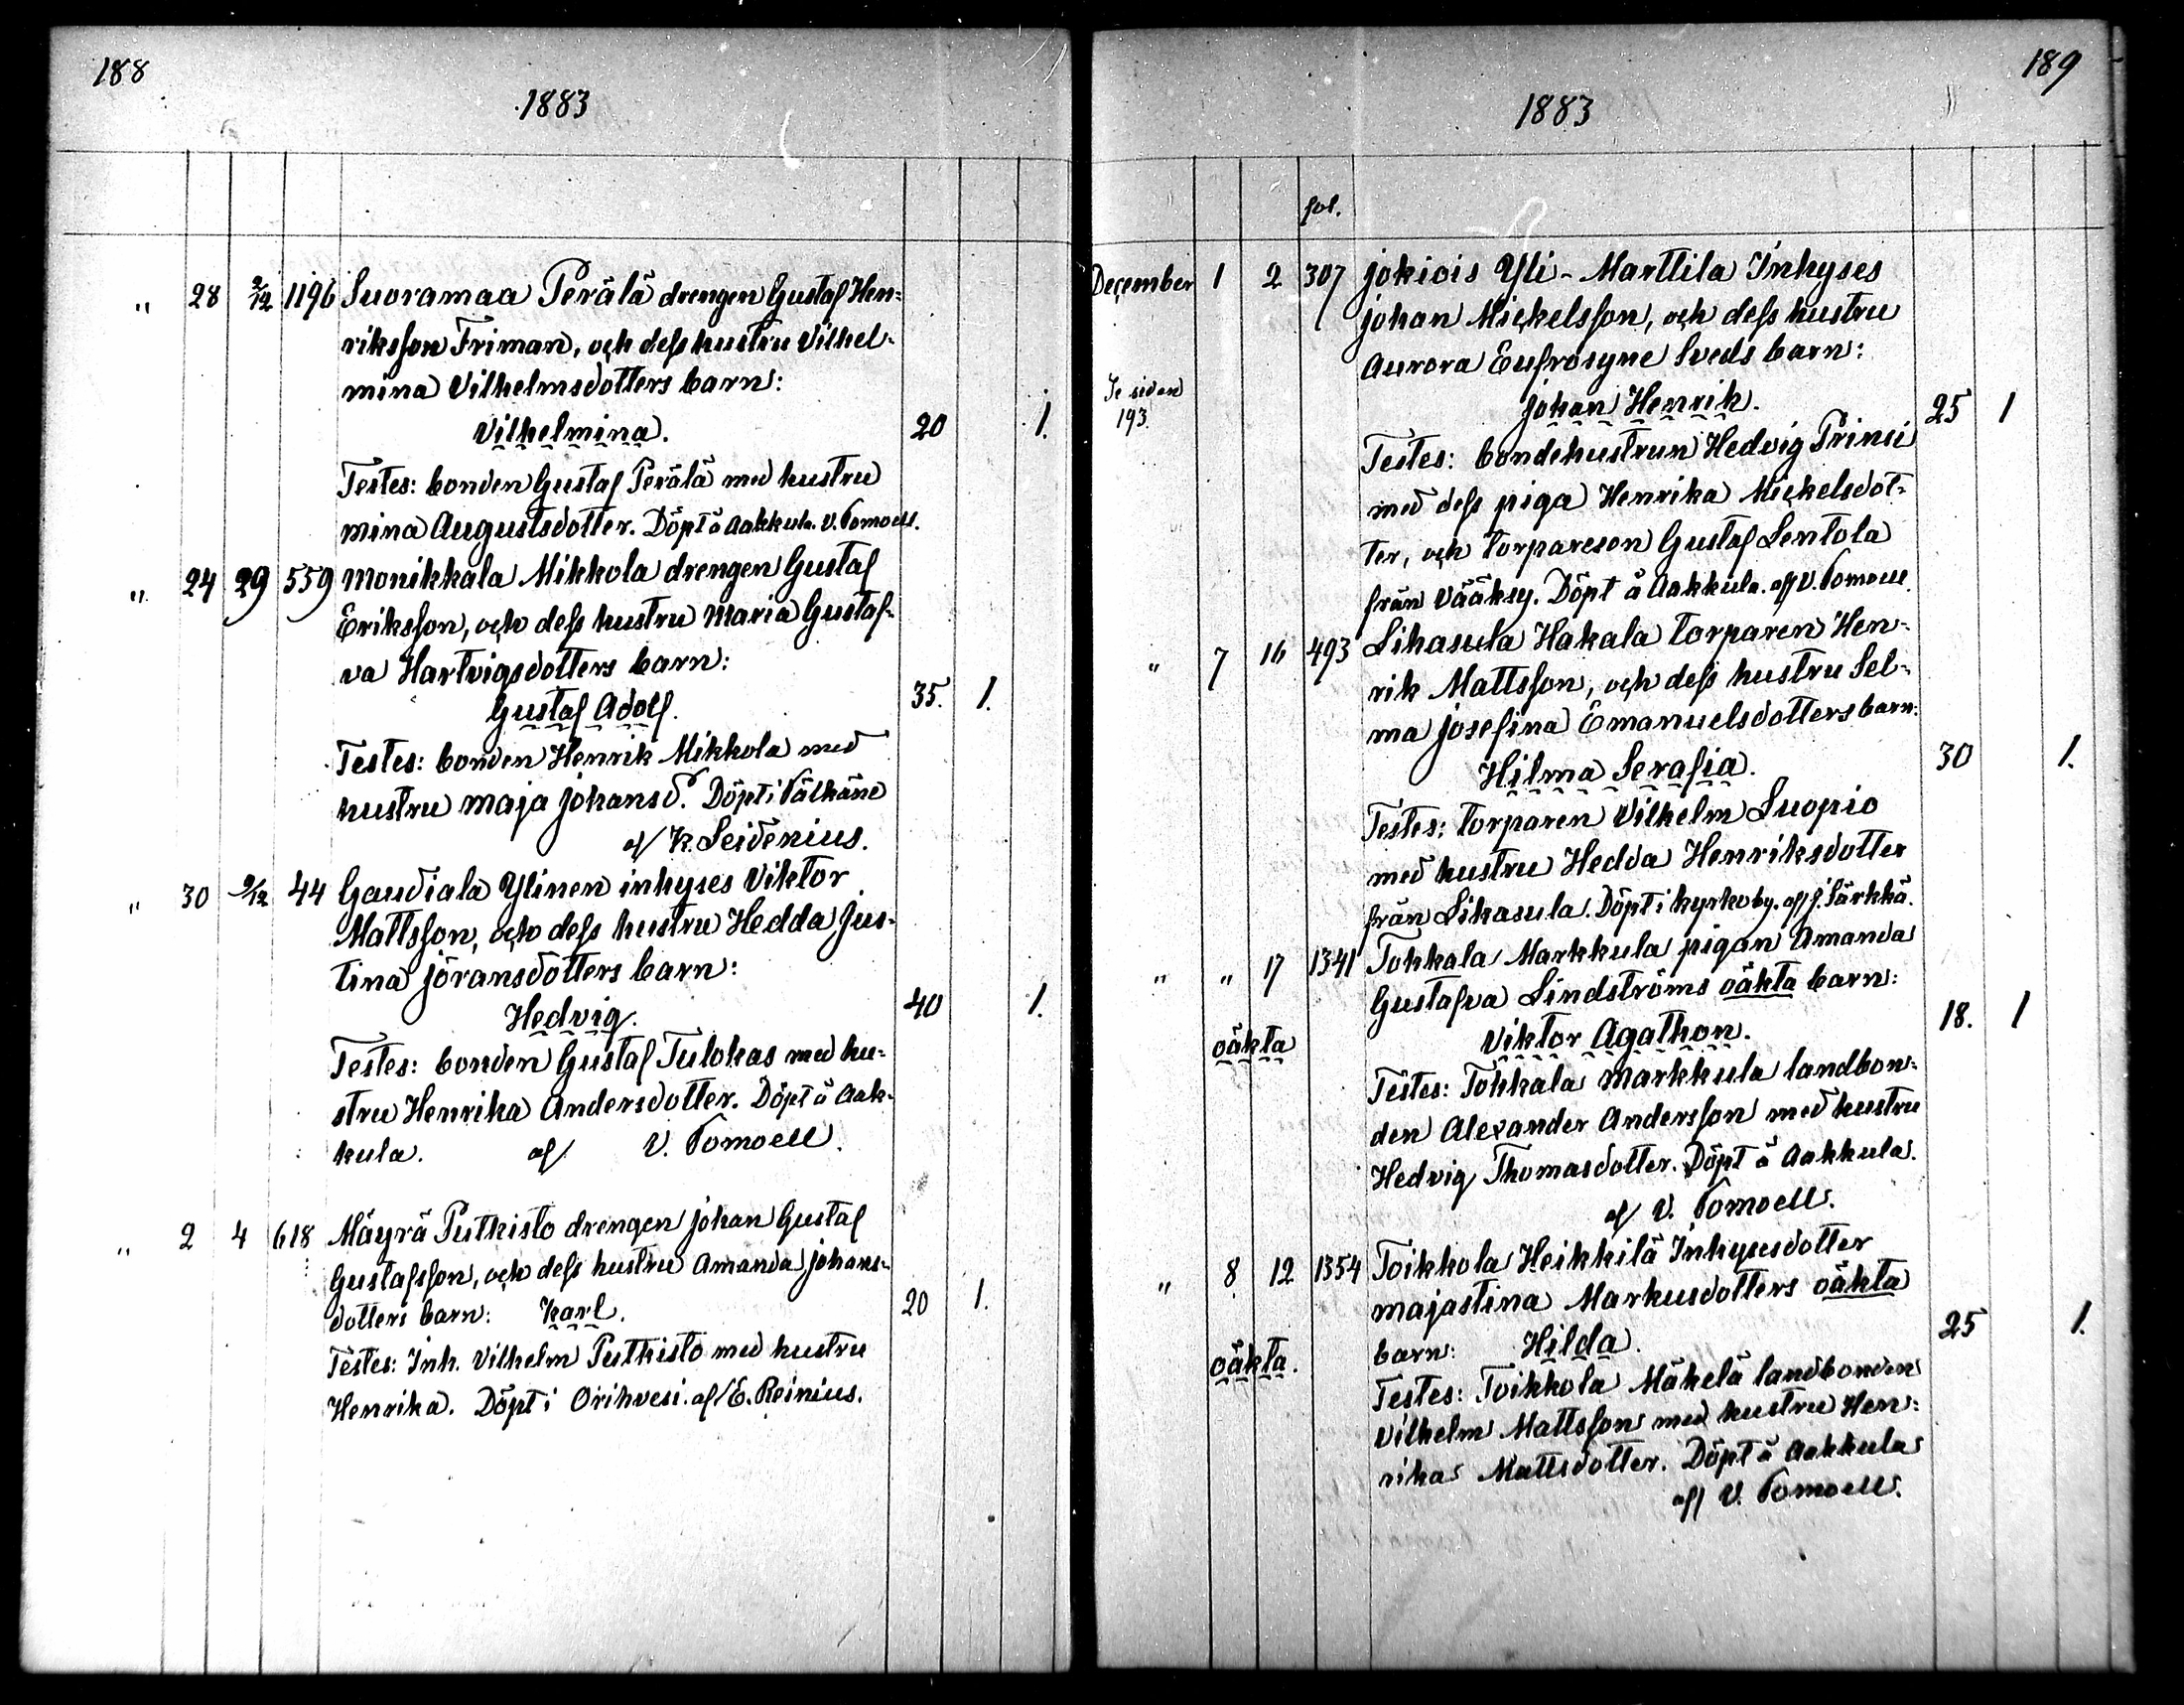 188
1883
" 28 2/12 1196 Suoramaa Perälä drengen Gustaf Hen-
riksson Friman, och dess hustru Vilhel-
mina Vilhelmsdotters barn:
Vilhelmina. 20 1.
Testes: bonden Gustaf Perälä med hustru
mina Augustsdotter. Döpt å Aakkula. V. Pomoell.
" 24 29 559 Monikkala Mikkola drengen Gustaf
Eriksson, och dess hustru Maria Gustaf-
va Hartvigsdotters barn:
Gustaf Adolf. 35. 1.
Testes: bonden Henrik Mikkola med
hustru maja johansd. Döpt i Pälkäne
af K. Leidenius.
" 30 9/12 44 Gaudiala Ylinen inhyses Viktor
Mattsson, och dess hustru Hedda Jus-
tina jöransdotters barn:
Hedvig. 40 1.
Testes: bonden Gustaf Tulokas med hu-
stru Henrika Andersdotter. Döpt å Aak-
kula. af V. Pomoell.
" 2 4 618 Mäyrä Putkisto drengen johan Gustaf
Gustafsson, och dess hustru Amanda johans-
dotters barn: Karl. 20 1.
Testes: Inh. Vilhelm Putkisto med hustru
Henrika. Döpt i Orihvesi. af E. Reinius.
189
1883
fol.
December 1 2 307 jokiois Yli-Marttila Inhyses
johan Mickelsson, och dess hustru
Aurora Eufrosyne Sveds barn:
Se sidan
193.
johan Henrik. 25 1
Testes: bondehustrun Hedvig Prinsi
med dess piga Henrika Mickelsdot-
ter, och torpareson Gustaf Lentola
från Vääksy. Döpt å Aakkula. af V. Pomoell.
" 7 16 493 Lihasula Hakala torparen Hen-
rik Mattsson, och dess hustru Sel-
ma josefina Emanuelsdotters barn:
Hilma Serafia. 30 1.
Testes: torparen Vilhelm Luopio
med hustru Hedda Henriksdotter
från Lihasula. Döpt i kyrkoby. af J. Särkkä.
" " 17 1341 Tohkala Markkula pigan Amanda
Gustafva Lindströms oäkta barn:
oäkta Viktor Agathon. 18. 1
Testes: Tohkala Markkula landbon-
den Alexander Andersson med hustru
Hedvig Thomasdotter. Döpt å Aakkula.
af V. Pomoell.
" 8 12 1354 Toikkola Heikkilä Inhysesdotter
majastina Markusdotters oäkta
oäkta. barn: Hilda. 25 1.
Testes: Toikkola Mäkelä landbonden
Vilhelm Mattsson med hustru Hen-
rika Mattsdotter. Döpt å Aakkula
af V. Pomoell.